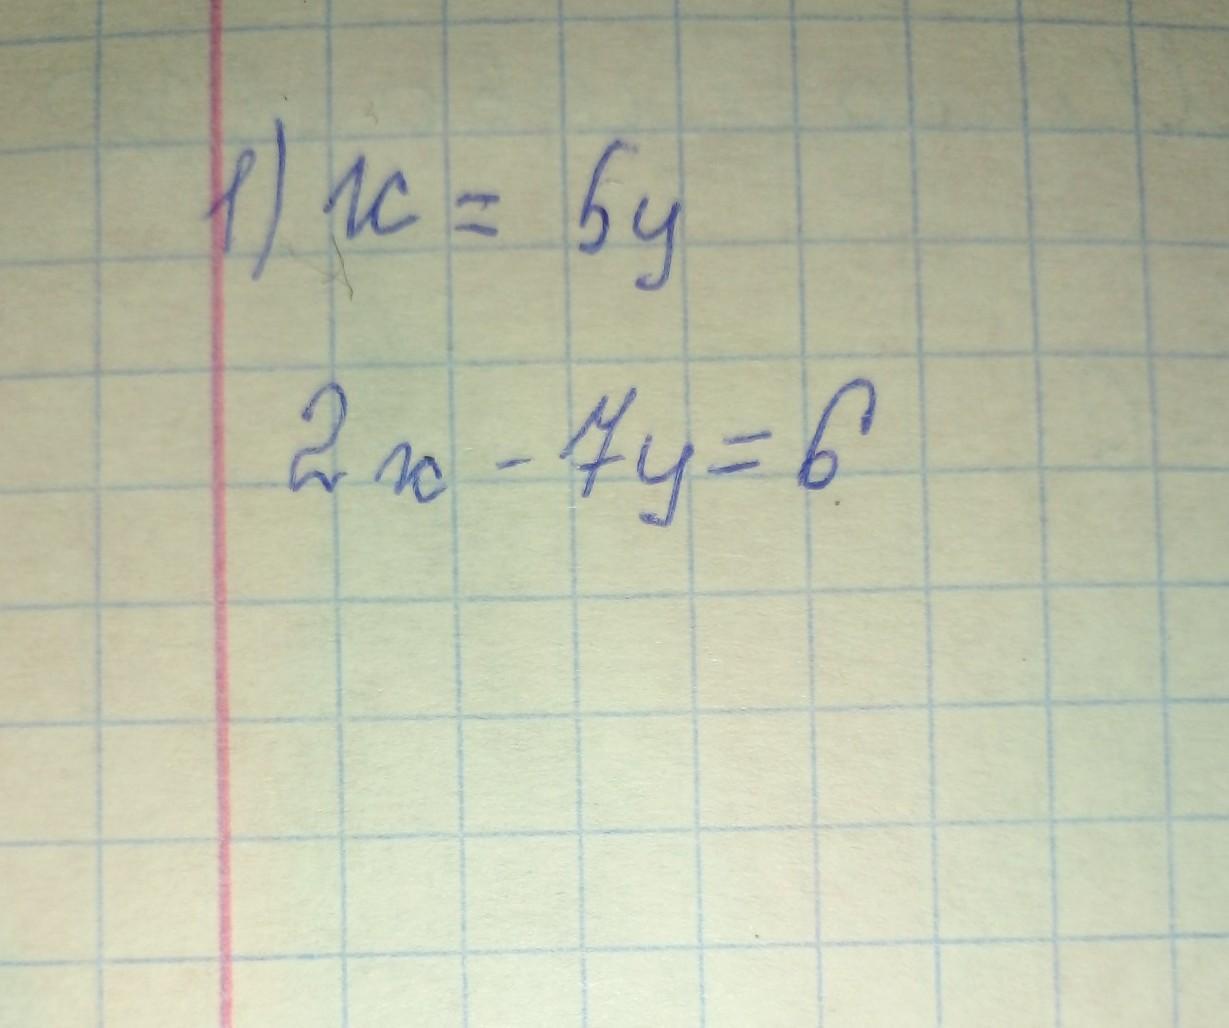 1) x = 5y
2x - 7y = 6